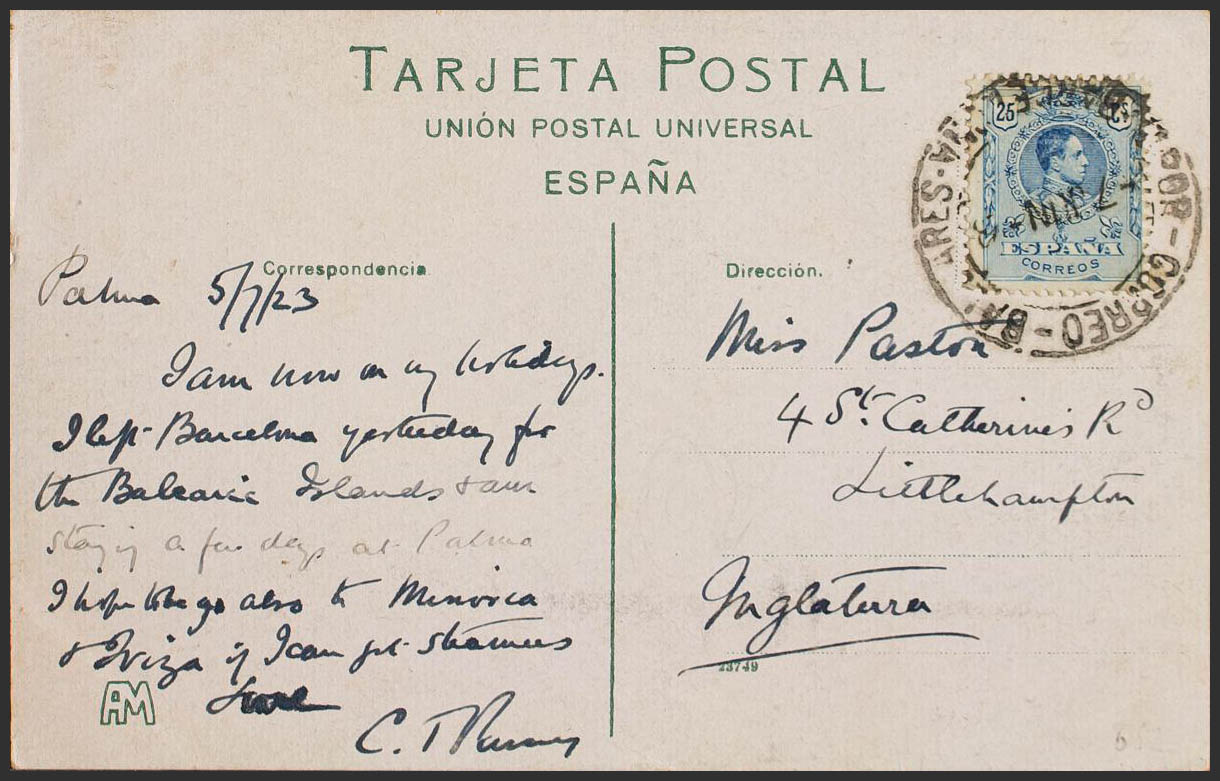 TARJETA POSTAL
UNIÓN POSTAL UNIVERSAL
ESPAÑA
25 25
ESPAÑA
CORREOS
CORREO - BALEARES
Correspondencia
Palma 5/7/23
I am now on my holidays.
I left Barcelona yesterday for
the Balearic Islands & am
staying a few days at Palma
I hope to go also to Minorca
& Iviza if I can get steamers
AM
C. T
Dirección.
Miss Paston
4 St. Catherine's Rd
Littlehampton
Inglaterra
23749